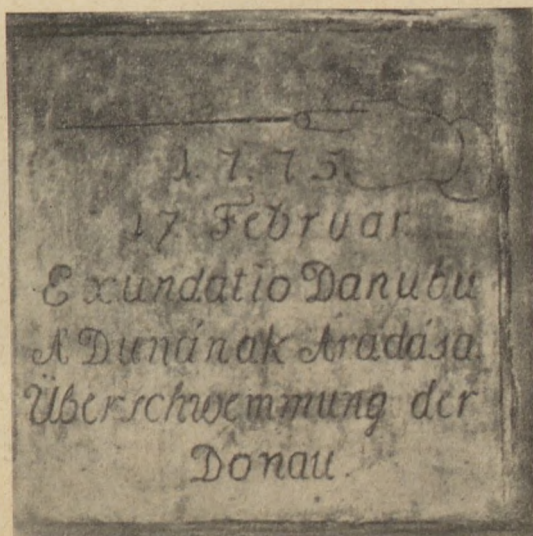 1.7.75.
17 Februar
Exundatio Danubii
A Dunának Áradása
Überschwemmung der
Donau.